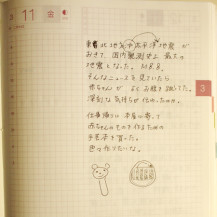 3 11 金
東北地方太平洋沖地震が
おきて、国内観測史上最大の
地震となった。M8.8。
そんなニュースを見ていたら、
赤ちゃんが よくお腹を蹴ってた。
深刻な気持ちが伝わったのか。
仕事帰りに本屋に寄って
赤ちゃんのものを作るための
手芸本を買った。
色々作りたいな。
3